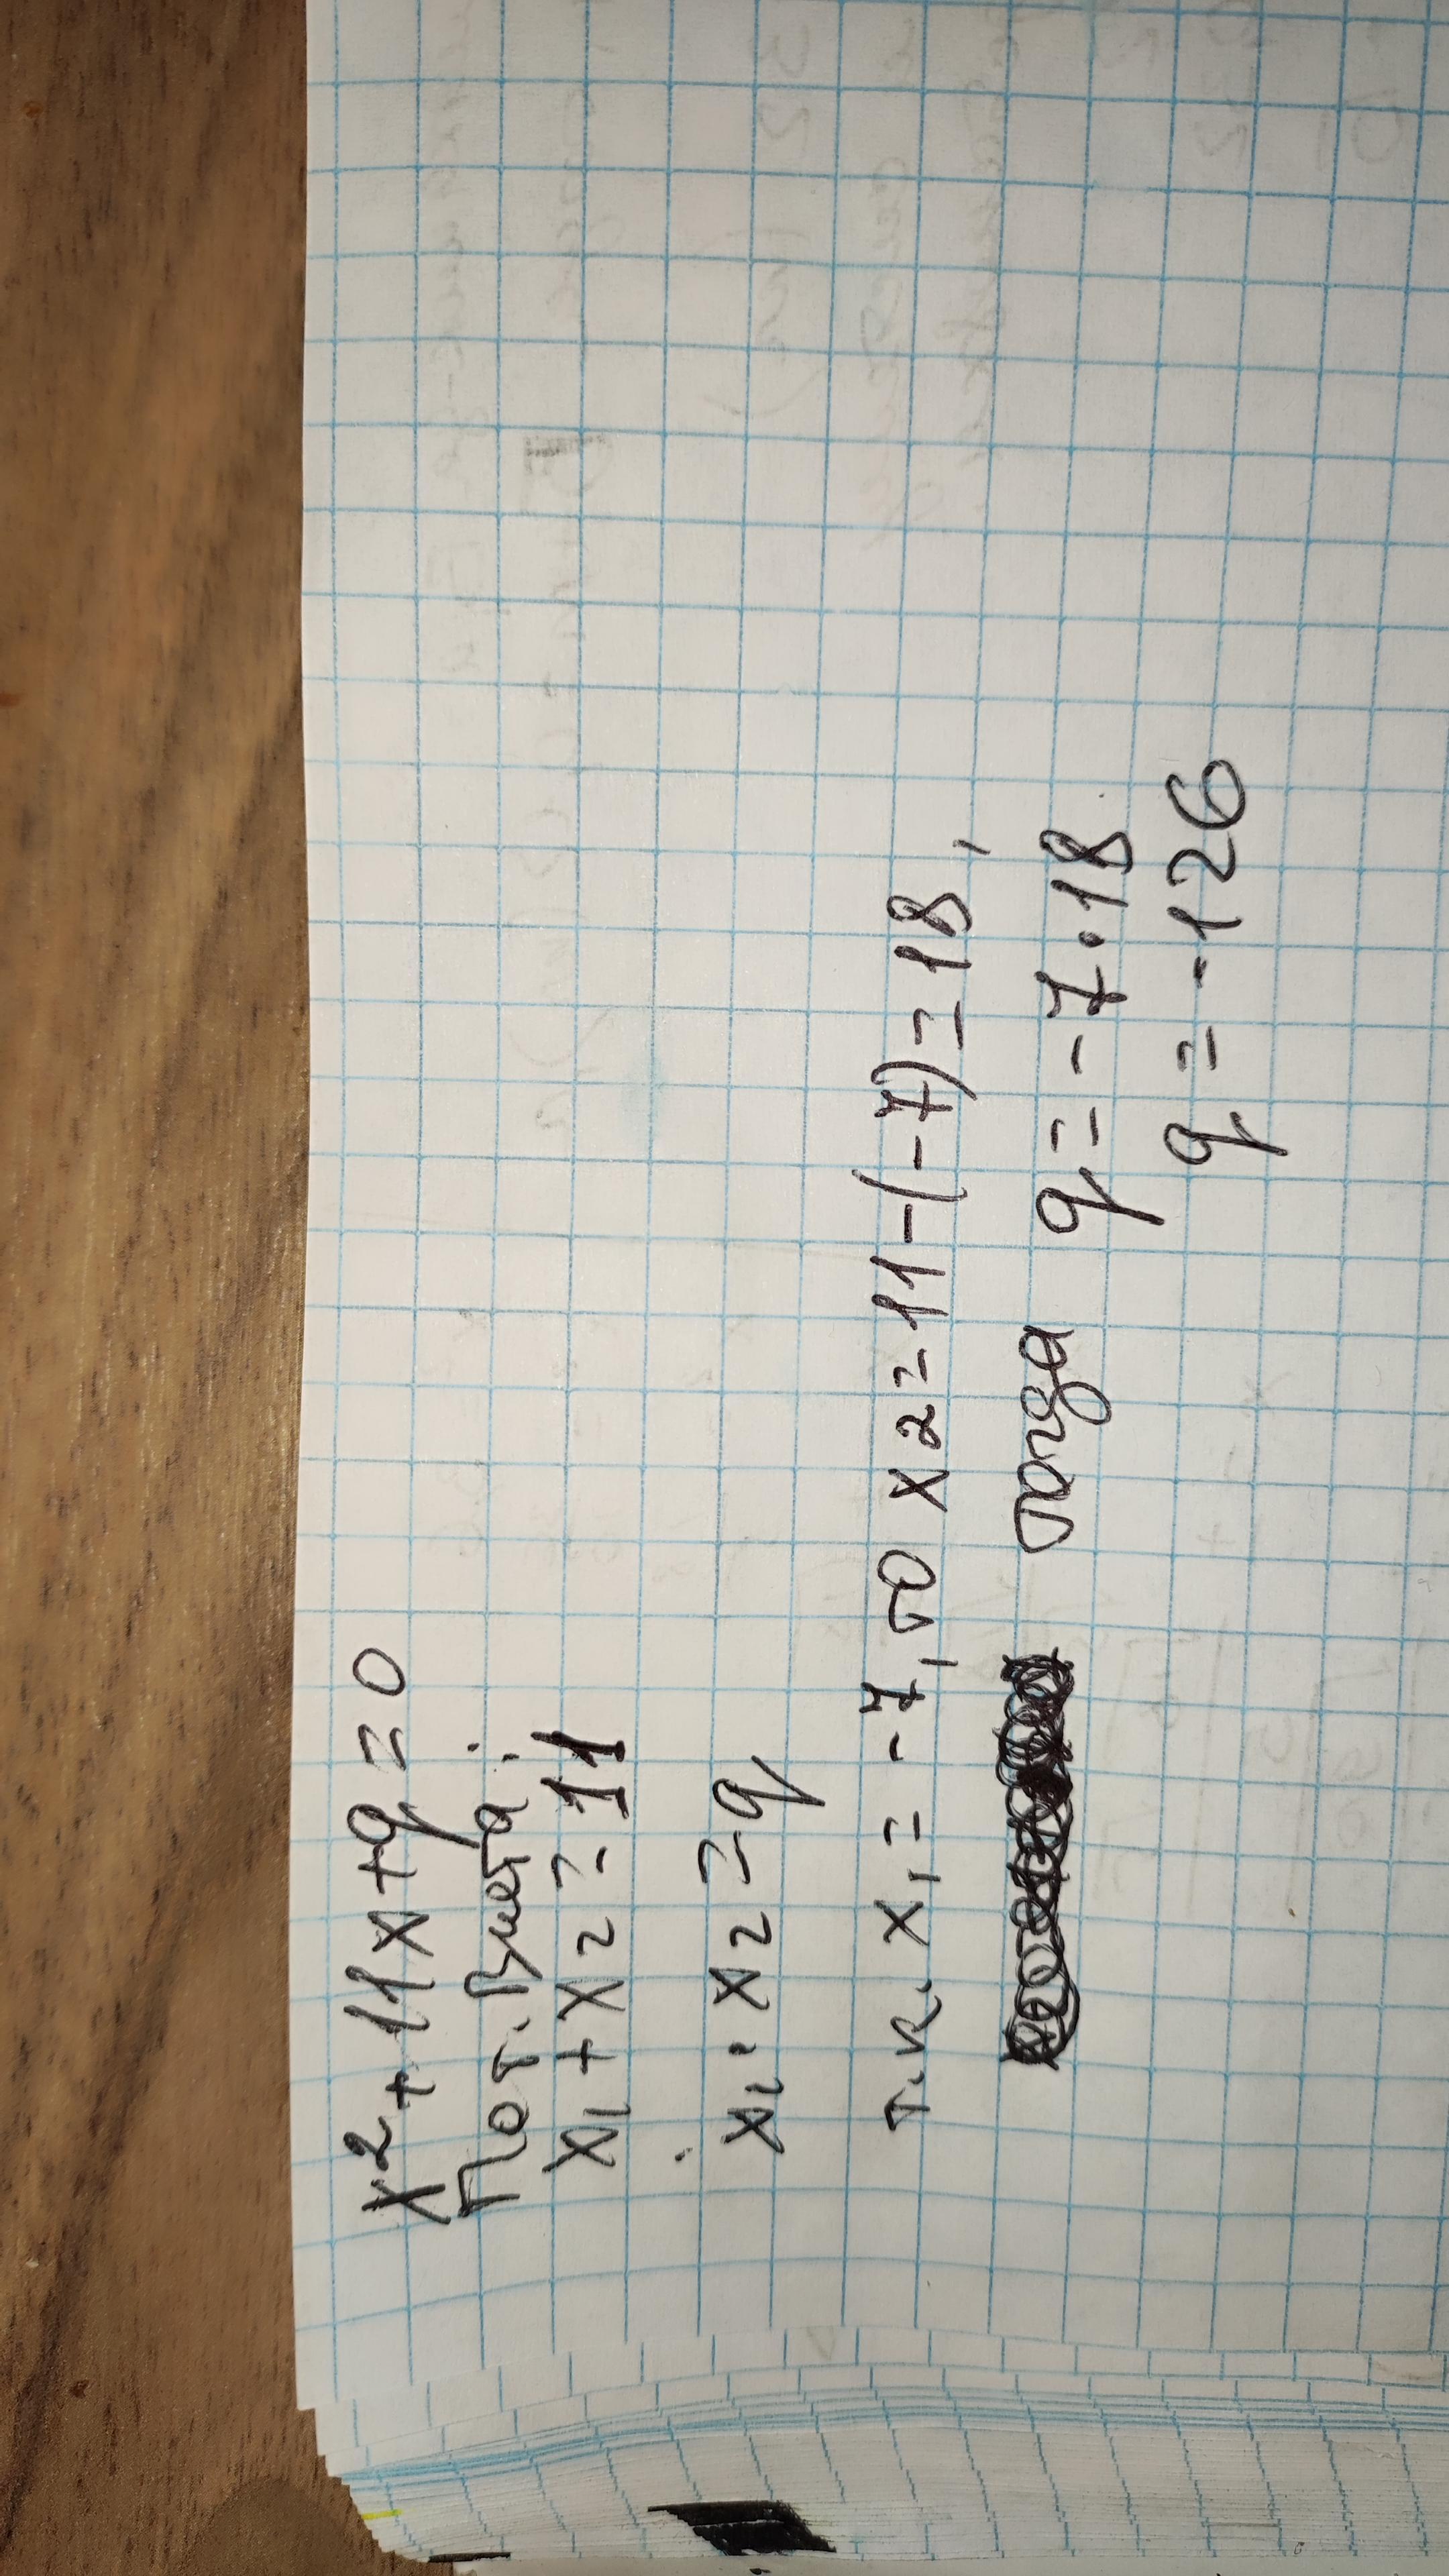 x² + 11x + q = 0
По т. Виета:
x₁ + x₂ = 11
x₁ · x₂ = q
т.к. x₁ = -7, то x₂ = 11-(-7) = 18,
тогда q = -7·18
q = -126